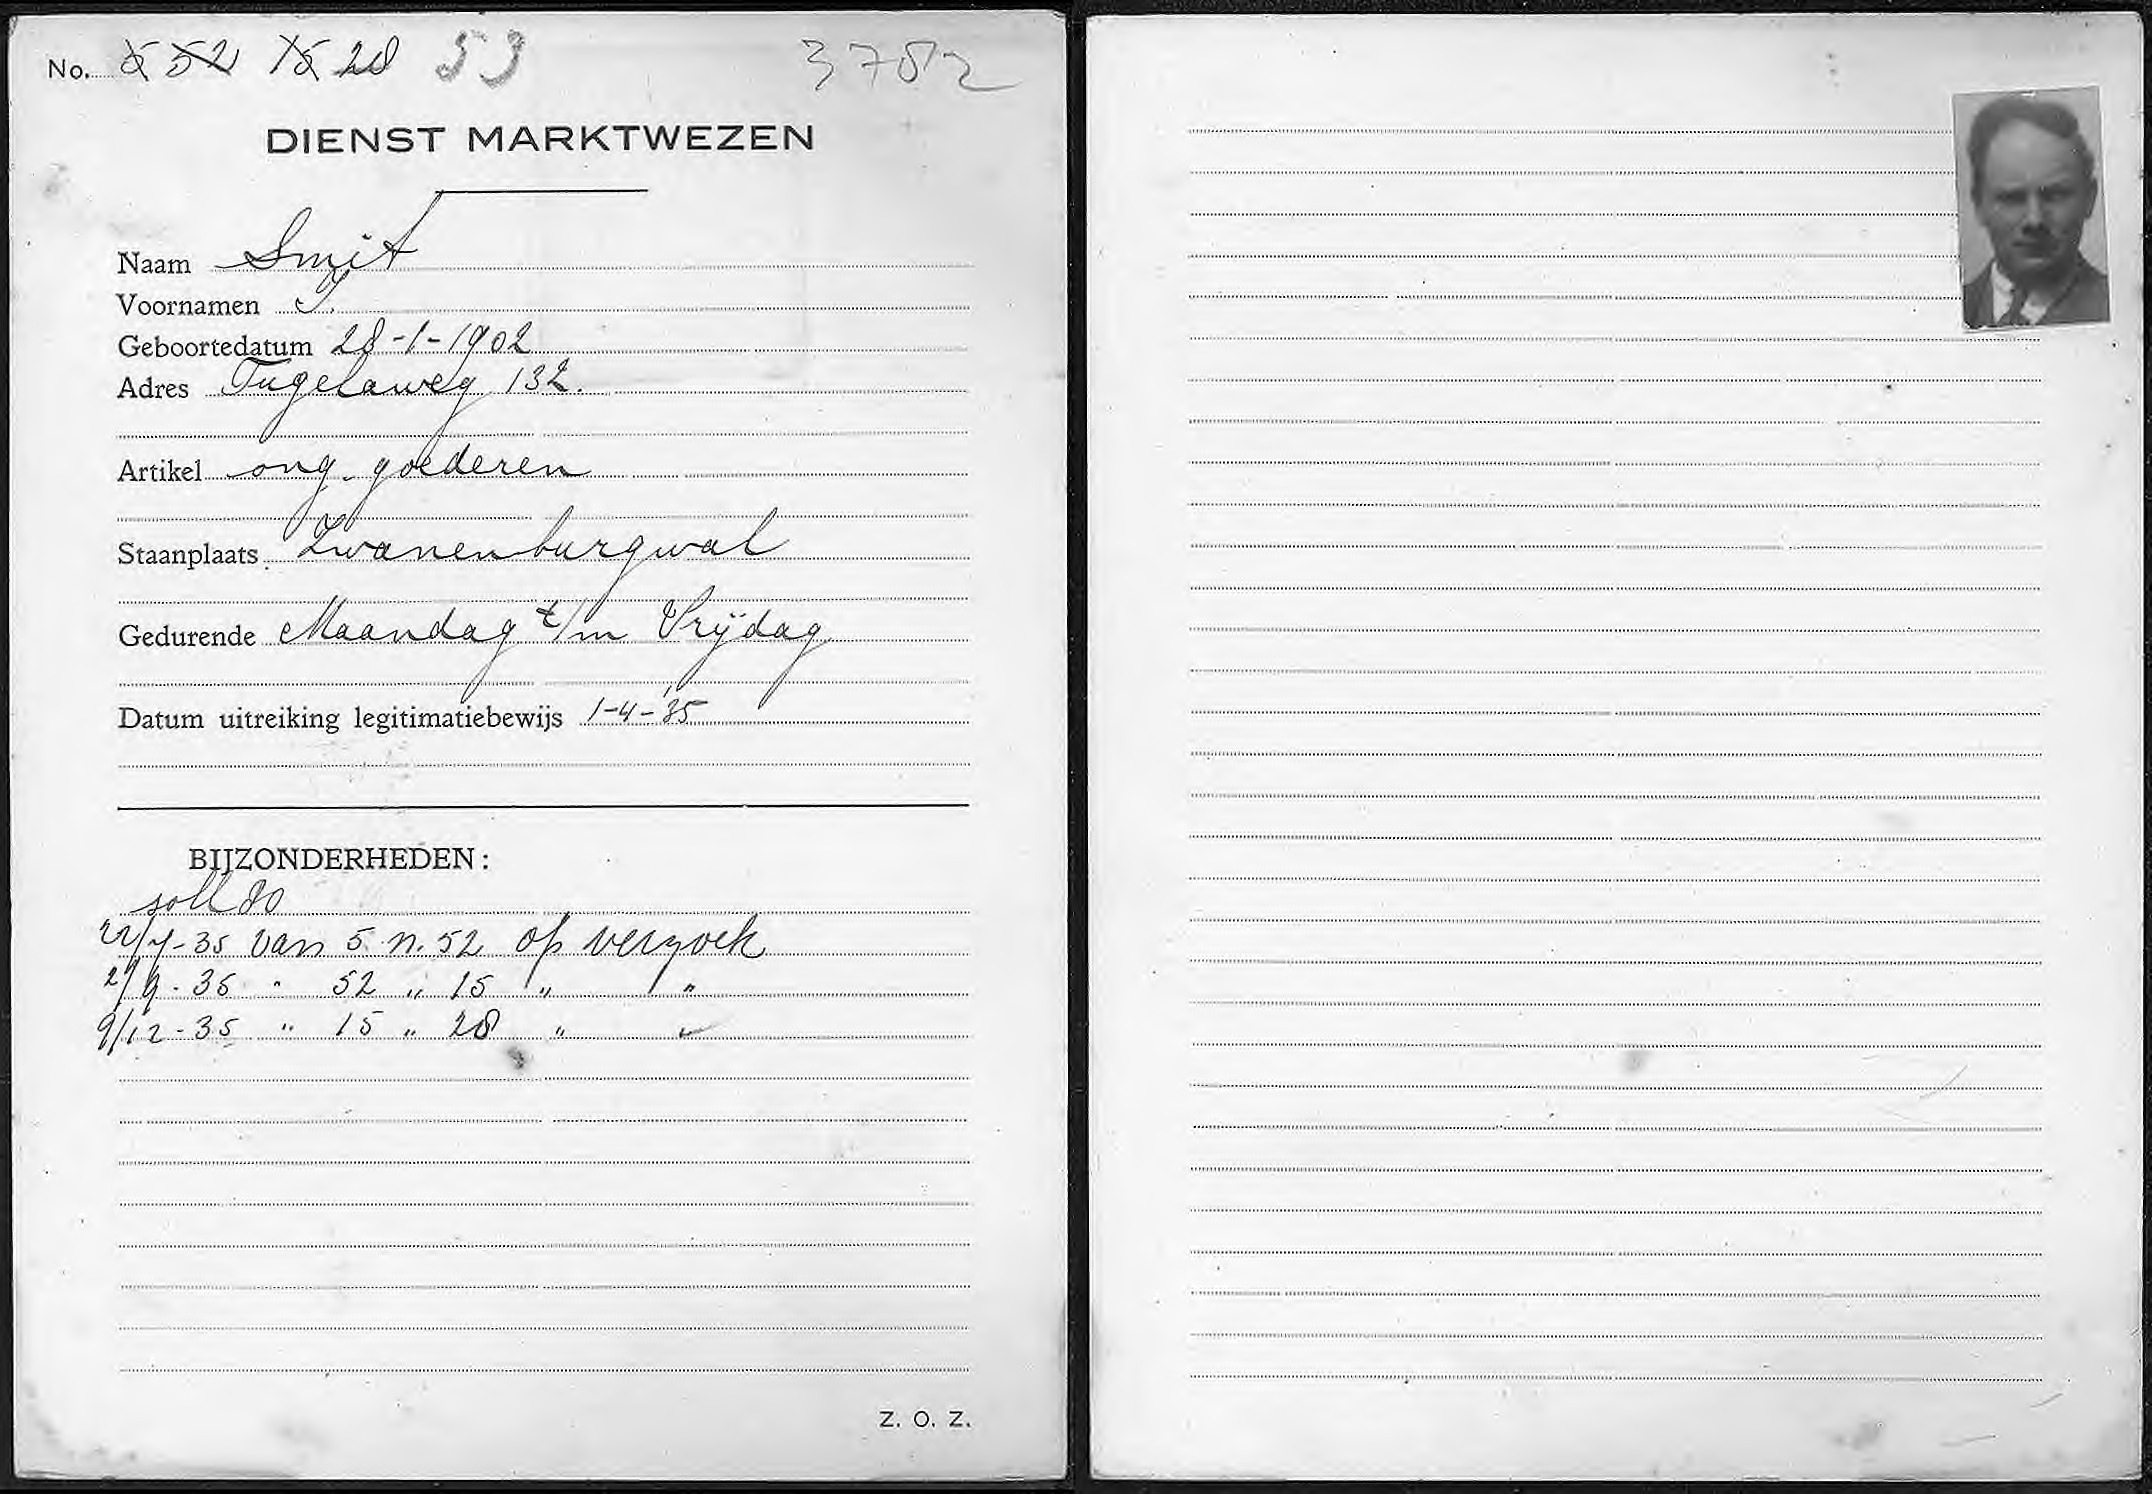 No. 5 52 15 28 53 3782
DIENST MARKTWEZEN
Naam Smit
Voornamen J.
Geboortedatum 28-1-1902
Adres Tugelaweg 132.
Artikel ong. goederen
Staanplaats Zwanenburgwal
Gedurende Maandag t/m Vrijdag
Datum uitreiking legitimatiebewijs 1-4-'35
BIJZONDERHEDEN:
soll 80
22/7-35 van 5 n. 52 op verzoek
2/9-35 " 52 " 15 " "
9/12-35 " 15 " 28 " "
Z. O. Z.